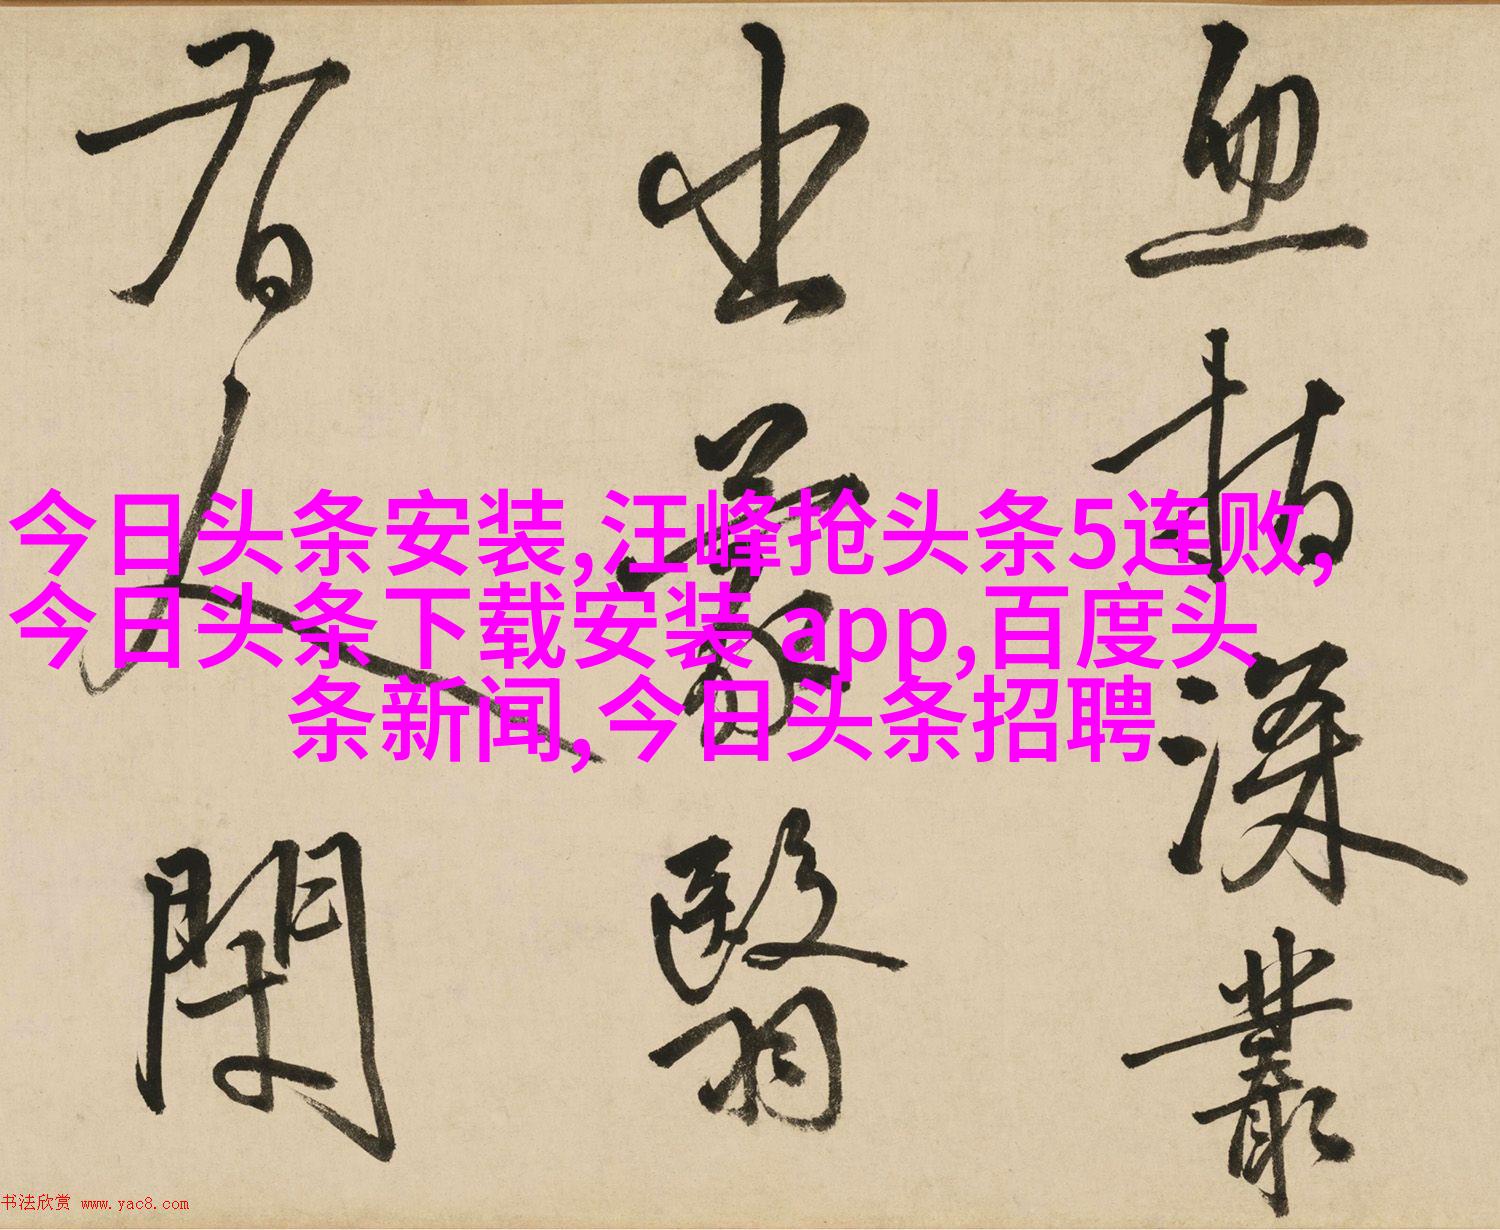 血指深叢
出蒙翳
看人
今日头条安装,汪峰抢头条5连败,
今日头条下载安装 app,百度头
条新闻,今日头条招聘
书法欣赏 www.yac8.com